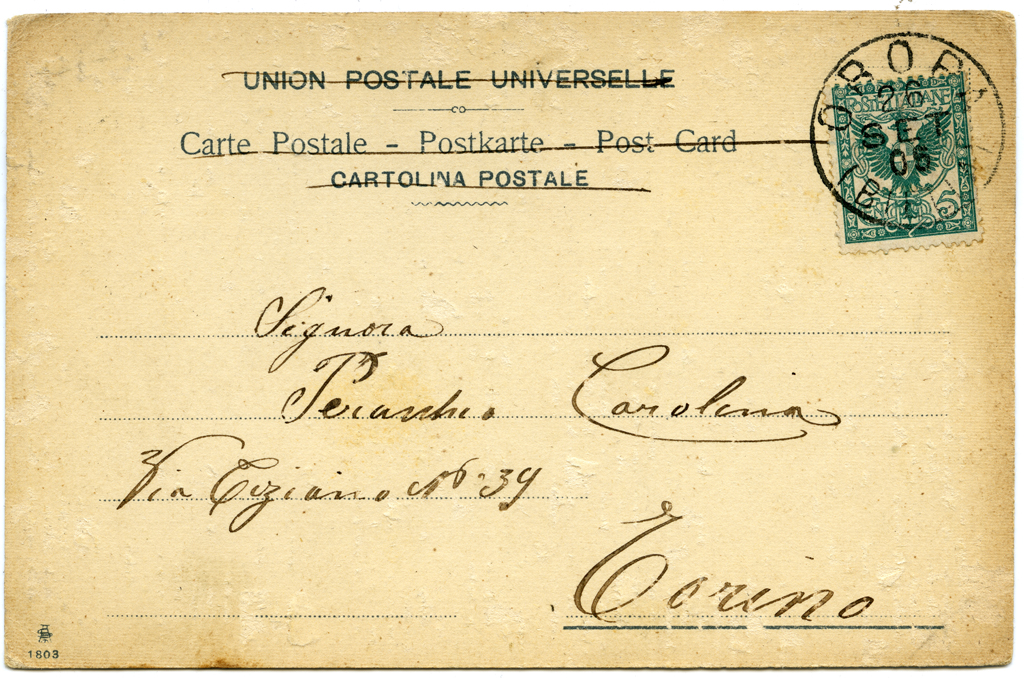 UNION POSTALE UNIVERSELLE
Carte Postale - Postkarte - Post Card
CARTOLINA POSTALE
OROPA
26
SET
06
5
Signora
Carolina
Via Tiziano No 39
Torino
1803